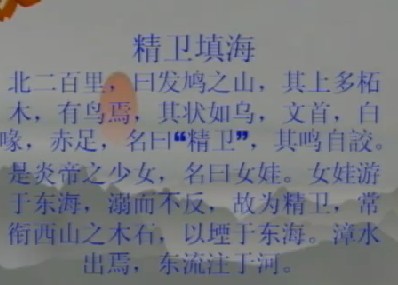 精卫填海
北二百里，曰发鸠之山，其上多柘
木，有鸟焉，其状如乌，文首，白
喙，赤足，名曰“精卫”，其鸣自詨。
是炎帝之少女，名曰女娃。女娃游
于东海，溺而不反，故为精卫，常
衔西山之木石，以堙于东海。漳水
出焉，东流注于河。